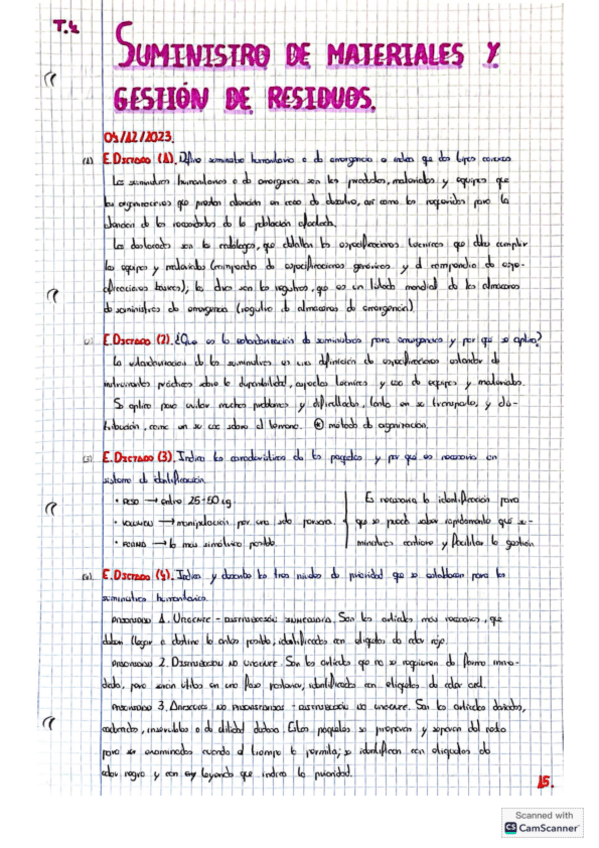 T.4
SUMINISTRO DE MATERIALES Y
GESTIÓN DE RESIDUOS.
04/12/2023.
(1) E.DICTADO (1). Define suministro humanitario o de emergencia e indica que dos tipos
Los suministros humanitarios o de emergencia son los productos, materiales y equipos que
las organizaciones que prestan atención en caso de desastre, así como los requeridos para la
atención de las necesidades de la población afectada.
Los son los catálogos, que detallan las especificaciones técnicas que deben cumplir
los equipos y materiales (compendio de especificaciones genéricas y el compendio de espe-
cificaciones básicas); los son los registros, que es un listado mundial de los almacenes
de suministros de emergencia (registro de almacenes de emergencia).
E.DICTADO (2). ¿Que es la estandarización de suministros para emergencias y por qué se aplica?
La estandarización de los suministros es una definición de especificaciones estándar de
instrumentos prácticos sobre la disponibilidad, aspectos técnicos y uso de equipos y materiales.
Se aplica para evitar muchos problemas y dificultades, tanto en su transporte, y dis-
tribución, como en su uso sobre el terreno. método de organización.
(3) E.DICTADO (3). Indica las características de los paquetes y por qué es necesario un
sistema de identificación
• PESO → entre 25-50 kg
• VOLUMEN → manipulación por una sola persona.
• FORMA → lo más simétrico posible.
Es necesaria la identificación para
que se pueda saber rapidamente qué su-
ministros contiene y facilitar la gestión
(4) E.DICTADO (4). Indica y describe los tres niveles de prioridad que se establecen para los
suministros humanitarios.
PRIORIDAD 1. URGENTE - DISTRIBUCIÓN INMEDIATA. Son los artículos más necesarios, que
deben llegar a destino lo antes posible, identificados con etiquetas de color rojo.
PRIORIDAD 2. DISTRIBUCIÓN NO URGENTE. Son los artículos que no se requieren de forma inme-
diata, pero serán útiles en una fase posterior, identificados con etiquetas de color azul.
PRIORIDAD 3. ARTÍCULOS NO PRIORITARIOS - DISTRIBUCIÓN NO URGENTE. Son los artículos dañados,
caducados, inservibles o de utilidad dudosa. Estos paquetes se preparan y separan del resto
para ser examinados cuando el tiempo lo permita; se identifican con etiquetas de
color negro y con leyenda que indica la prioridad.
15.
Scanned with
CS CamScanner